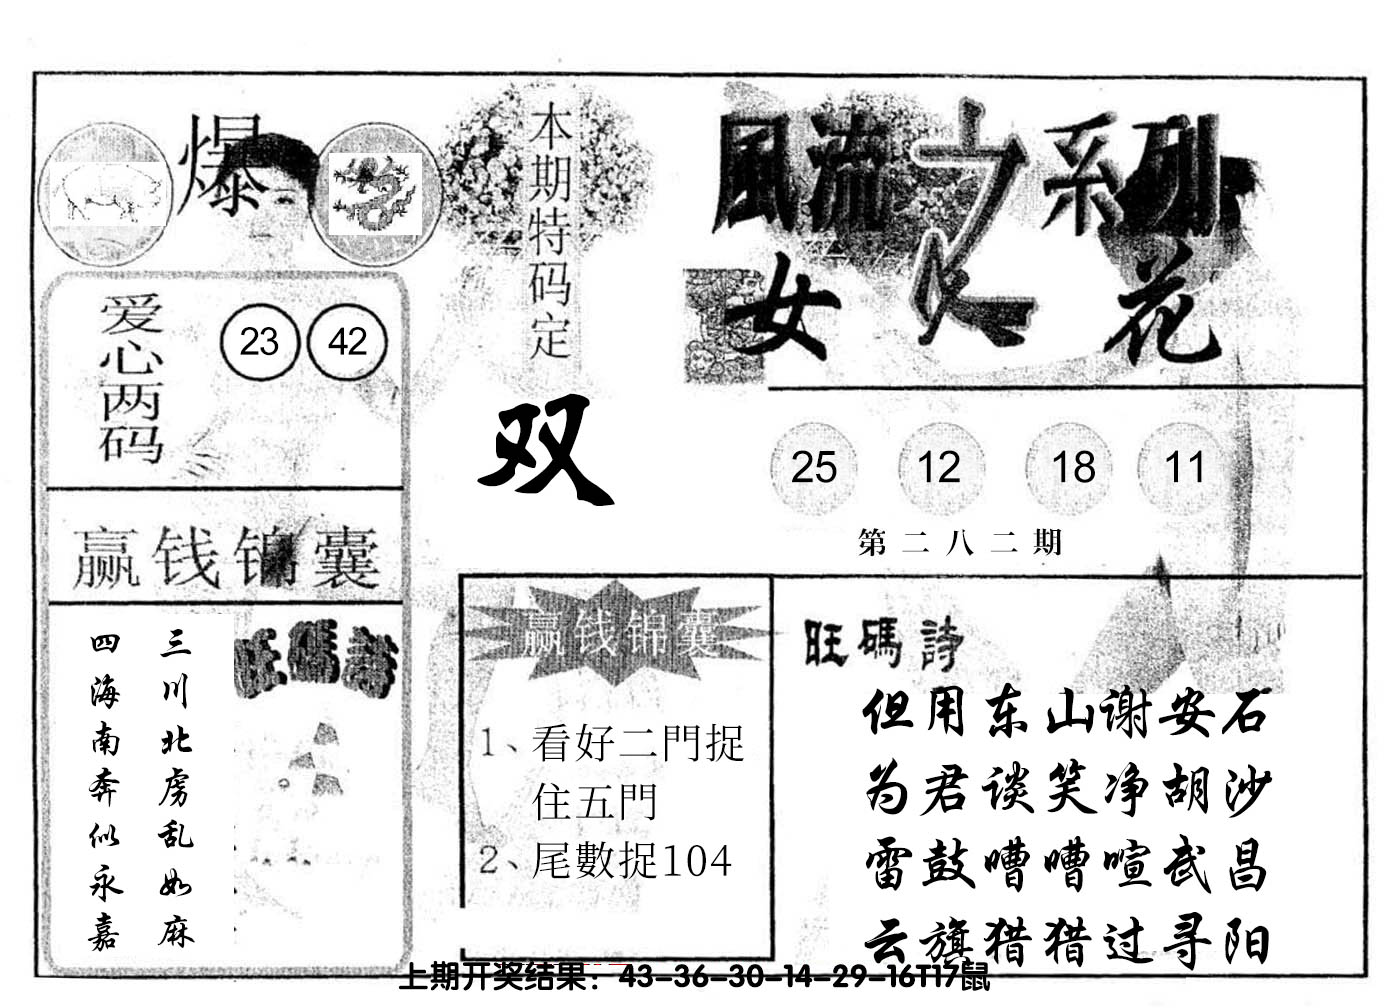 爆
本期特码定
双
風流之系列
女人花
爱心两码
23 42
25 12 18 11
第二八二期
赢钱锦囊
三川北虏乱如麻
四海南奔似永嘉
旺碼詩
赢钱锦囊
1、看好二門捉
住五門
2、尾數捉104
旺碼詩
但用东山谢安石
为君谈笑净胡沙
雷鼓嘈嘈喧武昌
云旗猎猎过寻阳
上期开奖结果：43-36-30-14-29-16T17鼠